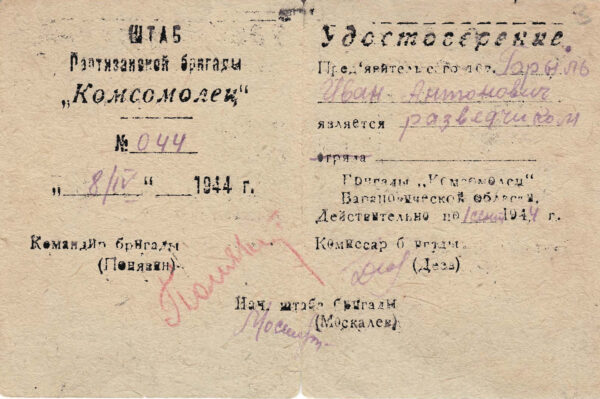 ШТАБ
Партизанской бригады
„Комсомолец“
№ 044
„ 8/IV “ 1944 г.
Командир бригады
(Понявин)
Удостоверение.
Пред'явитель сего тов. Горыль
Иван Антонович
является разведчиком
отряда
Бригады „Комсомолец“
Барановической области.
Действительно по 1944 г.
Комиссар бригады
(Деза)
Нач. штаба бригады
(Москалев)